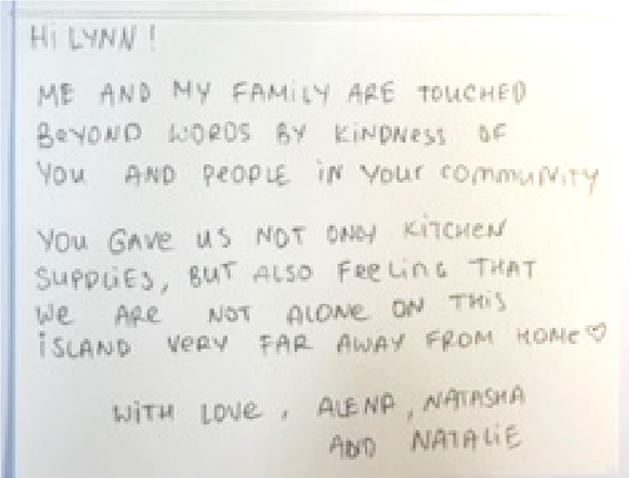 Hi LYNN!
ME AND MY FAMiLY ARE TOUCHED
BeYOND WORDS BY KiNDNess OF
YOU AND PeOPLE iN YOUr COMMUNiTY
YOU GAVE US NOT ONLY KiTCHEN
SUPPLiES, BUT ALSO Feeling THAT
We ARe NOT ALONE ON THiS
iSLAND VeRY FAR AWAY FROM HOMe♡
WiTH LOVe, ALENA, NATASHA
AND NATALiE